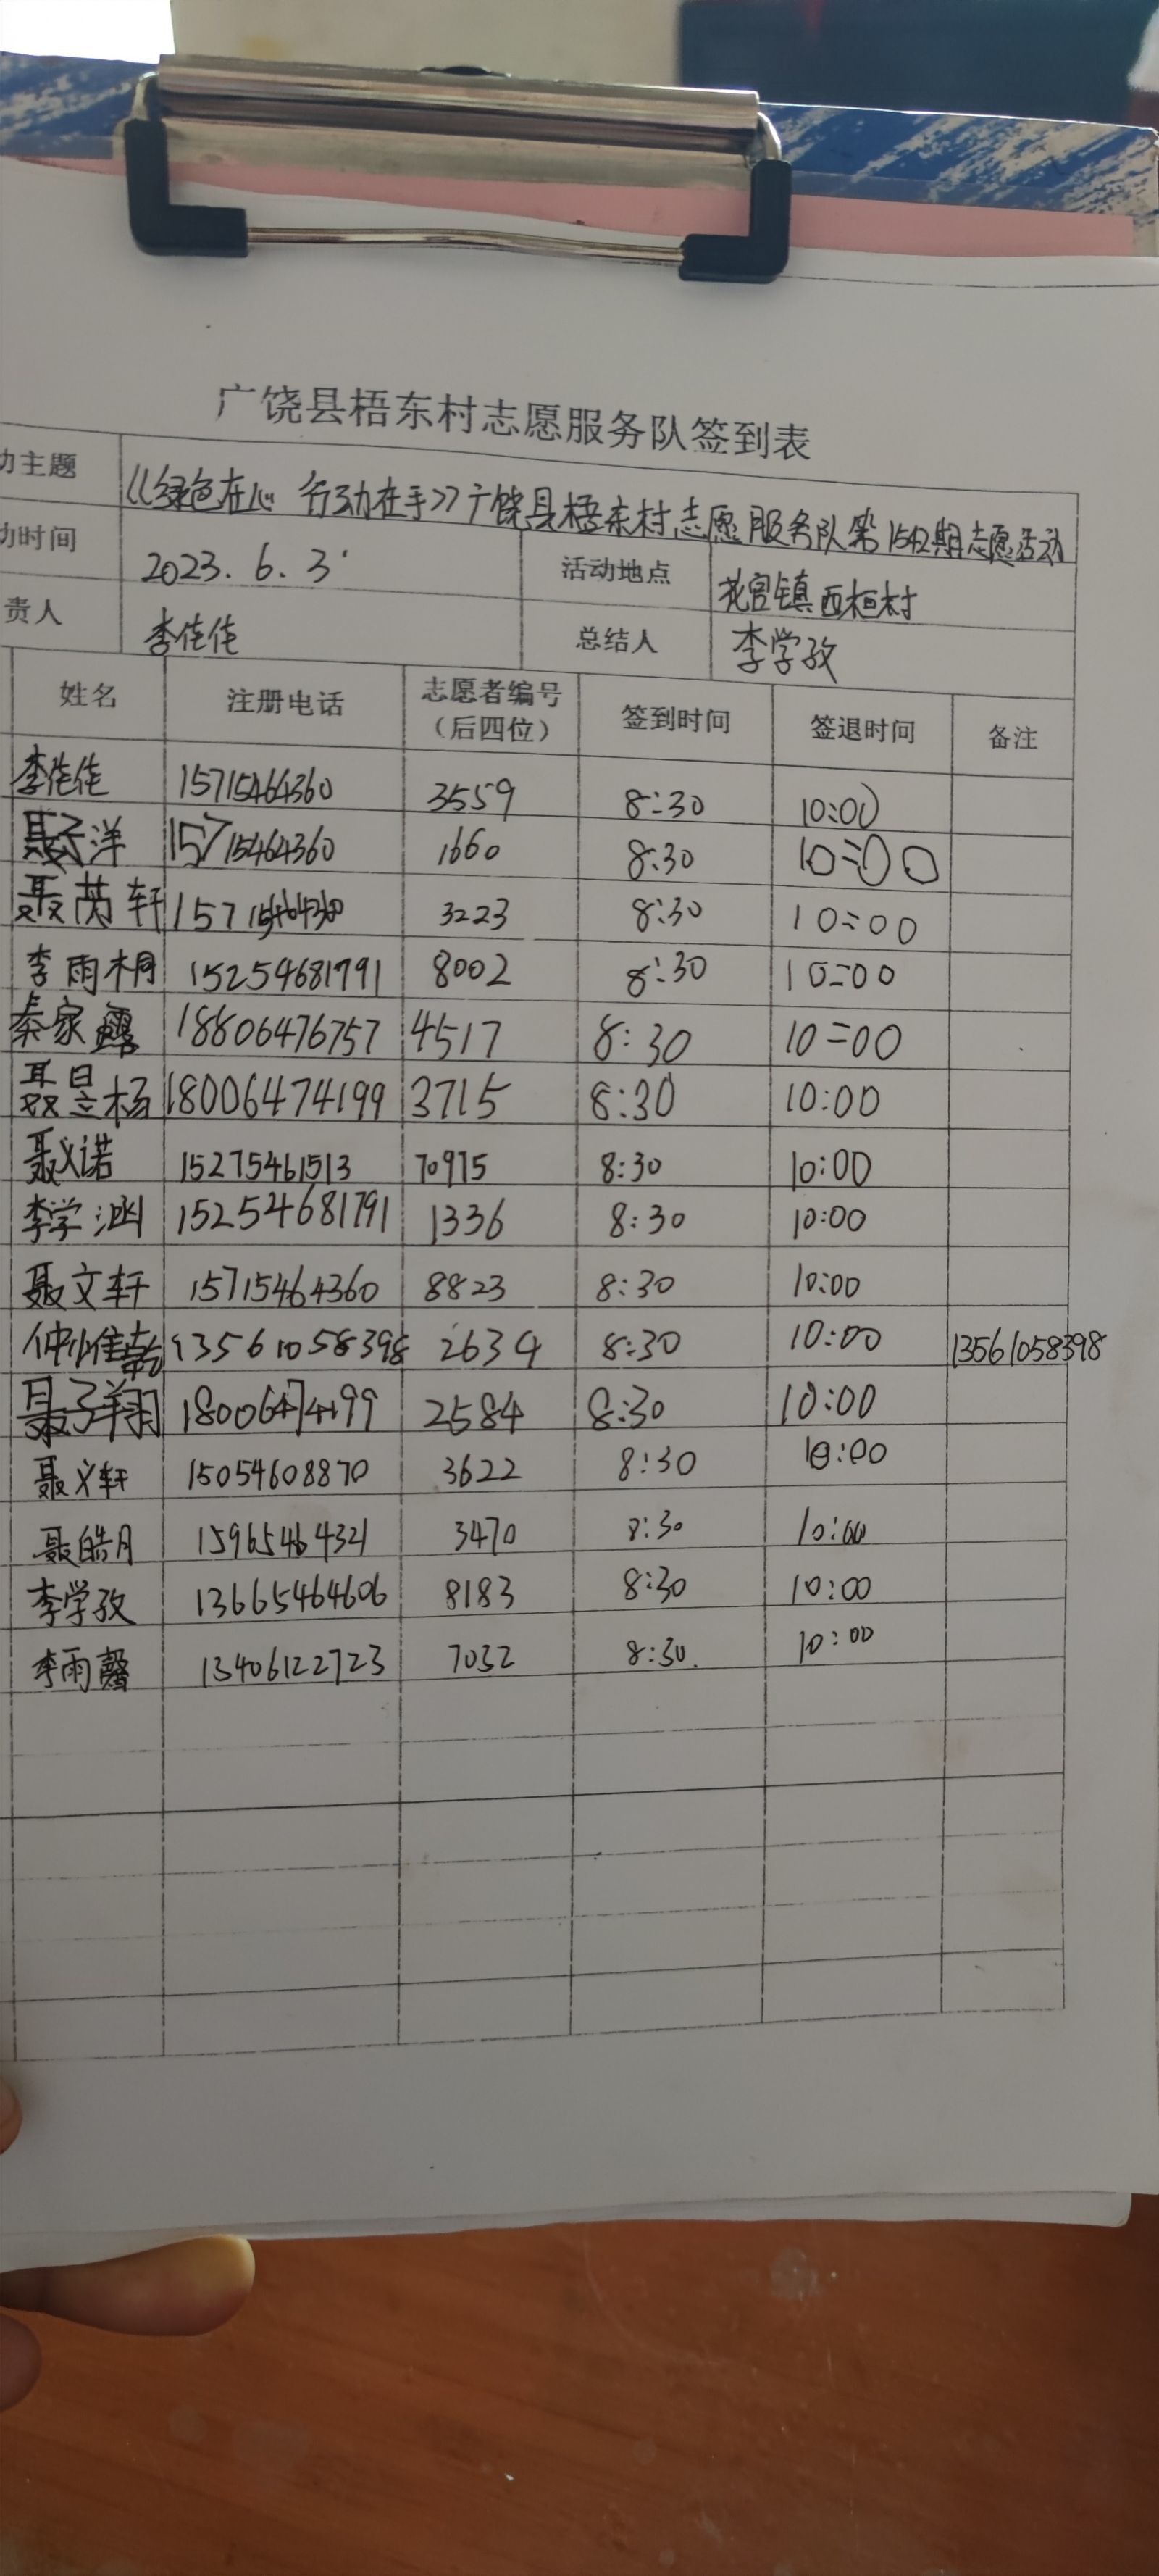 广饶县梧东村志愿服务队签到表
动主题 《绿色在心 行动在手》广饶县梧东村志愿服务队第 期志愿活动
动时间 2023.6.3 活动地点 花官镇西桓村
责人 李佳佳 总结人 李学孜
姓名 注册电话 志愿者编号（后四位） 签到时间 签退时间 备注
李佳佳 15715464360 3559 8:30 10:00
聂子洋 15715464360 1660 8:30 10:00
聂芮轩 3223 8:30 10:00
李雨桐 15254681791 8002 8:30 10:00
秦家 18806476757 4517 8:30 10:00
聂昱杨 18006474199 3715 8:30 10:00
聂义诺 15275461513 70975 8:30 10:00
李学涵 152254681791 1336 8:30 10:00
聂文轩 15715464360 8823 8:30 10:00
仲惟 13561058398 2634 8:30 10:00 13561058398
聂子翔 18006474199 2584 8:30 10:00
聂义轩 15054608870 3622 8:30 10:00
聂皓月 3470 8:30 10:00
李学孜 13665464606 8183 8:30 10:00
李雨馨 13406122723 7032 8:30 10:00